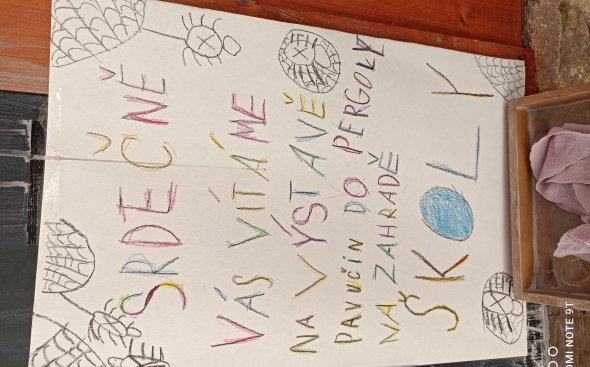 SRDEČNĚ
VÁS VÍTÁME
NA VÝSTAVĚ
PAVUČIN DO PERGOLY
NA ZAHRADĚ
ŠKOLKY
OMI NOTE 9T